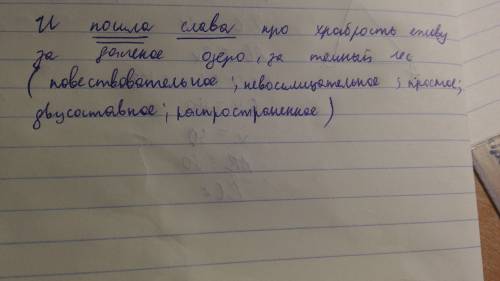 И пошла слава про храбрость епову
за далекое озеро, за темный лес
(повествовательное; невосклицательное; простое;
двусоставное; распространенное)